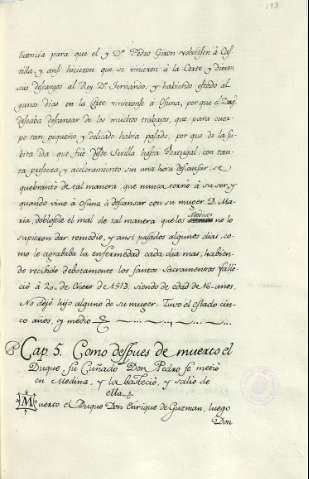 licencia para que el y Dn. Pedro Giron volviessen à Cas
tilla, y ansi hicieron que se vinieron à la Corte y dieron
sus descargos al Rey Dn. Fernando, y habiendo estado al
gunos dias en la Corte vinieronse à Osuna, porque el Duq.
deseaba descansar de los muchos trabajos, que para cuer
po tan pequeño y delicado habia pasado, por que de la su
bita ida que fue desde Sevilla hasta Portugal con tan
ta priesa, y aceleramiento sin una hora descansar se
quebrantò de tal manera, que nunca tornò à su ser, y
quando vino à Osuna à descansar con su muger D. Ma
ria, doblosele el mal de tal manera que los Medicos no le
supieron dar remedio, y ansi pasados algunos dias, co
mo le agrababa la enfermedad cada dia mas, habien
do recibido debotamente los santos Sacramentos falle
ciò à 20. de Enero de 1513. siendo de edad de 16. anos.
No dejò hijo alguno de su muger. Tuvo el estado cin
co anos, y medio
Cap. 5. Como despues de muerto el
Duque, su Cuñado Don Pedro se metio
en Medina, y la basteciò, y saliò de
ella.
Muerto el Duque Don Enrique de Guzman, luego
Don